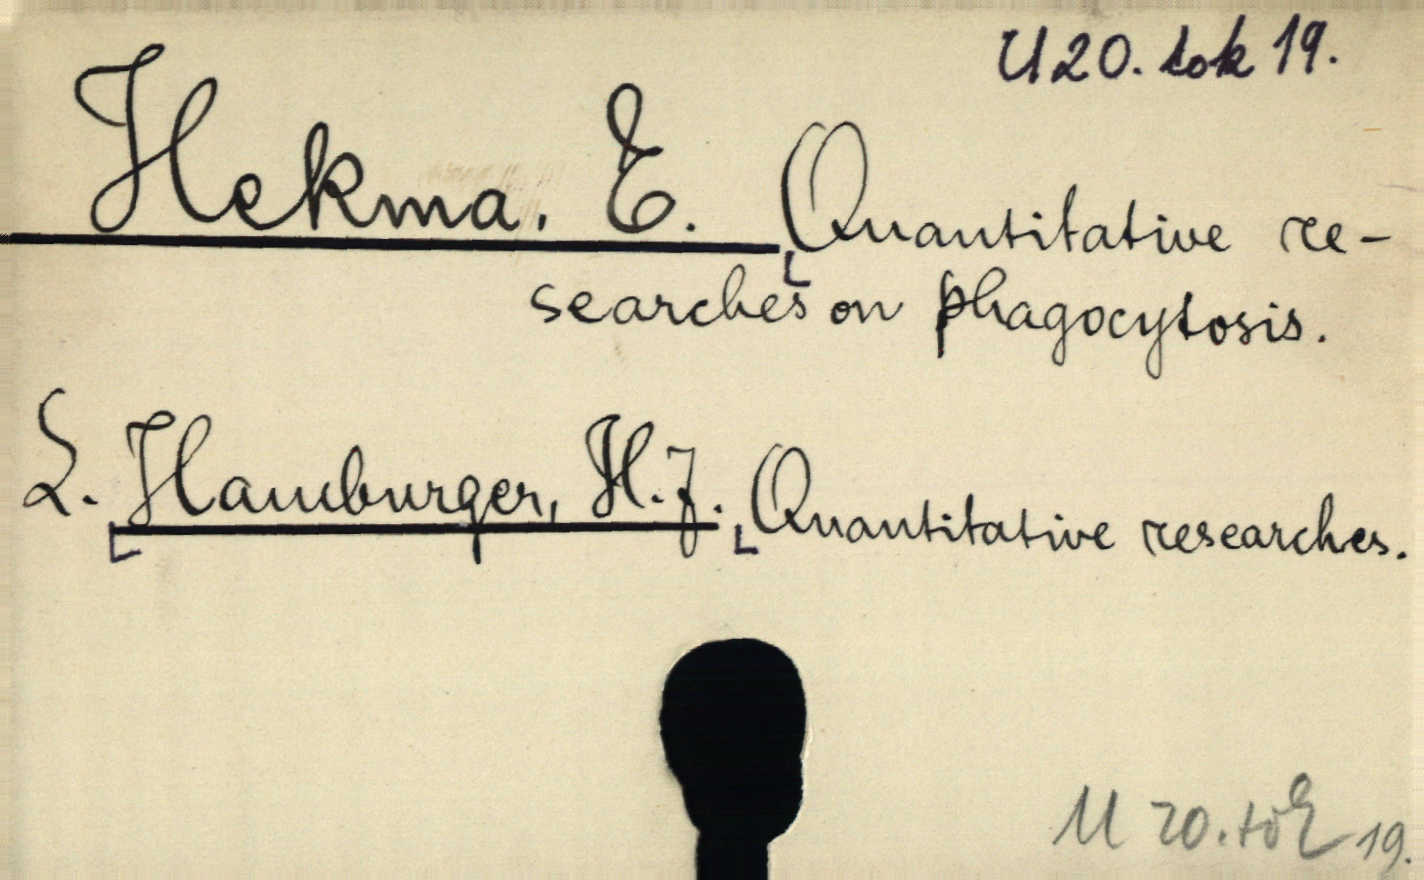 U 20. tok 19.
Hekma, E. Quantitative re-
searches on phagocytosis.
L. Hamburger, H. J. Quantitative researches.
U 20. tok 19.